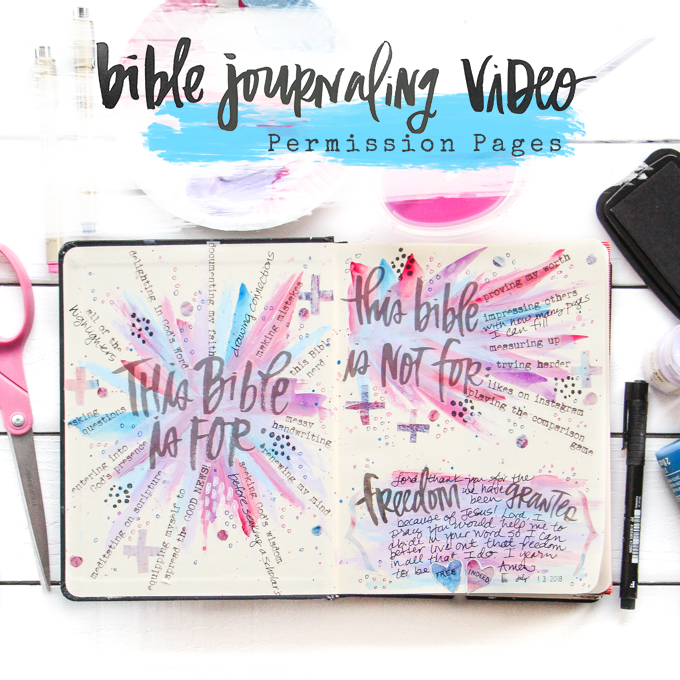 bible journaling video
Permission Pages
delighting in God's word
documenting my faith
drawing connections
making mistakes
this Bible
nerd
all of the
highlighters
THIS BIBLE
is FOR
asking
questions
entering into
God's presence
meditating on scripture
equipping myself to
spread the GOOD NEWS!
seeking God's wisdom
before seeking a scholar's
renewing my mind
messy
handwriting
this bible
is NOT for
proving my worth
impressing others
with how many pages
I can fill
measuring up
trying harder
likes on instagram
playing the comparison
game
Lord, thank you for the
freedom we have been granted
because of Jesus! Lord, I
pray you would help me to
abide in your word so I can
better live out that freedom
in all that I do. I yearn
to be FREE INDEED
Amen
July 13 2018